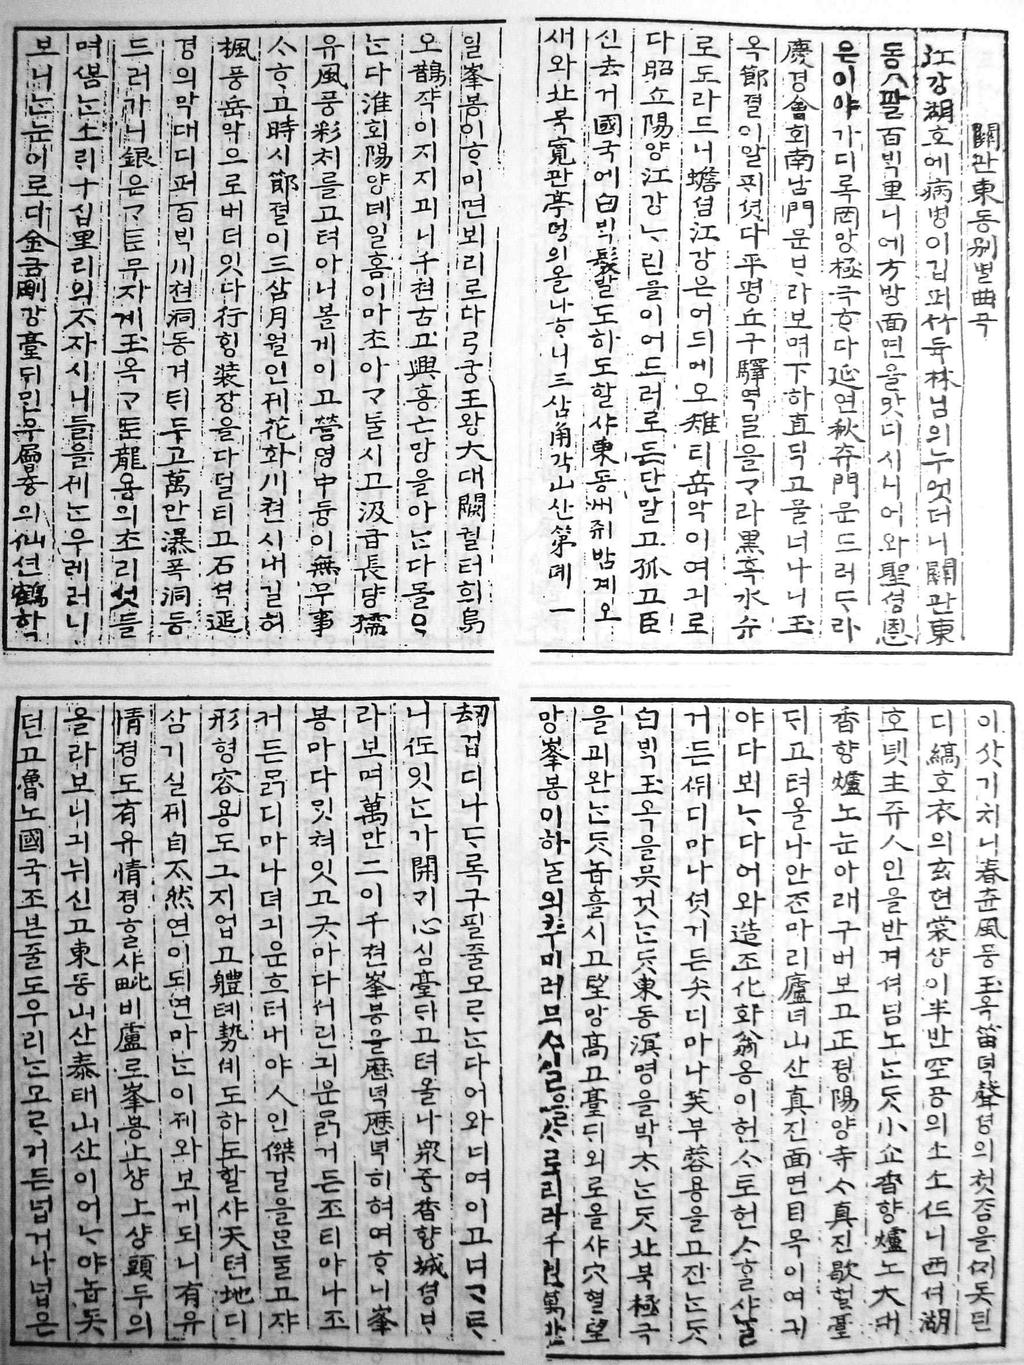 關관東동別별曲곡
江강湖호에病병이깁퍼竹듀林님의누엇더니關관東
동八팔百ᄇᆡᆨ里니에方방面면을맛디시니어와聖셩恩
은이야가디록罔망極극ᄒᆞ다延연秋츄門문드러ᄃᆞ라
慶경會회南남門문ᄇᆞ라보며下하直딕고믈너나니玉
옥節졀이알ᄑᆡ셧다平평丘구驛역ᄆᆞᆯ을ᄀᆞ라黑흑水슈
로도라드니蟾셤江강은어듸메오雉티岳악이여긔로
다昭쇼陽양江강ᄂᆞ린믈이어드러로든단말고孤고臣
신去거國국에白ᄇᆡᆨ髮발도하도할샤東동州쥐밤계오
새와北븍寬관亭뎡의올나ᄒᆞ니三삼角각山산第뎨一
일峯봉이ᄒᆞ미면뵈리로다弓궁王왕大대闕궐터희烏
오鵲쟉이지지괴니千쳔古고興흥亡망을아ᄂᆞᆫ다몰ᄋᆞ
ᄂᆞᆫ다淮회陽양녜일홈이마초아ᄀᆞᄐᆞᆯ시고汲급長댱孺
유風풍彩ᄎᆡ를고텨아니볼게이고營영中듕이無무事
ᄉᆞᄒᆞ고時시節졀이三삼月월인제花화川쳔시내길히
楓풍岳악으로버더잇다行ᄒᆡᆼ裝장을다ᄯᅥᆯ티고石셕逕
경의막대디퍼百ᄇᆡᆨ川쳔洞동겨ᄐᆡ두고萬만瀑폭洞동
드러가니銀은ᄀᆞᄐᆞᆫ무지게玉옥ᄀᆞᄐᆞᆫ龍용의초리섯돌
며ᄲᅮᆷᄂᆞᆫ소ᄅᆡ十십里리의ᄌᆞ자시니들을제ᄂᆞᆫ우레러니
보니ᄂᆞᆫ눈이로다金금剛강臺ᄃᆡ민우層층의仙션鶴학
이삿기치니春츈風풍玉옥笛뎍聲셩의첫ᄌᆞᆷ을ᄭᆡ돗던
디縞호衣의玄현裳샹이半반空공의소소ᄯᅳ니西셔湖
호녯主쥬人인을반겨셔넘노ᄂᆞᆫᄃᆞᆺ小쇼香향爐노大대
香향爐노눈아래구버보고正졍陽양寺ᄉᆞ真진歇헐臺
ᄃᆡ고텨올나안ᄌᆞᆫ마리廬녀山산真진面면目목이여긔
야다뵈ᄂᆞ다어와造조化화翁옹이헌ᄉᆞ토헌ᄉᆞᄒᆞᆯ샤ᄂᆞᆯ
거든ᄯᅱ디마나셧거든솟디마나芙부蓉용을고잣ᄂᆞᆫᄃᆞᆺ
白ᄇᆡᆨ玉옥을믓것ᄂᆞᆫᄃᆞᆺ東동溟명을박ᄎᆞᄂᆞᆫᄃᆞᆺ北북極극
을괴왓ᄂᆞᆫᄃᆞᆺ놉흘시고望망高고臺ᄃᆡ외로올샤穴혈望
망峯봉이하ᄂᆞᆯ의추미러므ᄉᆞ일을ᄉᆞ로리라千쳔萬만
劫겁디나ᄃᆞ록구필줄모ᄅᆞᄂᆞᆫ다어와너여이고너ᄀᆞᄐᆞ
니ᄯᅩ잇ᄂᆞᆫ가開ᄀᆡ心심臺ᄃᆡ고텨올나衆듕香향城셩ᄇᆞ
라보며萬만二이千쳔峯봉을歷녁歷녁히혀여ᄒᆞ니峯
봉마다ᄆᆡ쳐잇고긋마다서린긔운ᄆᆞᆰ거든조티마나조
커든ᄆᆞᆰ디마나뎌긔운흐터내야人인傑걸을ᄆᆞᆫᄃᆞᆯ고쟈
形형容용도그지업고體톄勢셰도하도할샤天텬地디
삼기실제自ᄌᆞ然연이되연마ᄂᆞᆫ이제와보게되니有유
情졍도有유情졍ᄒᆞᆯ샤毗비盧로峯봉上샹上샹頭두의
올라보니긔뉘신고東동山산泰태山산이어ᄂᆞ야놉돗
던고魯노國국조븐줄도우리ᄂᆞᆫ모ᄅᆞ거든넙거나넙은